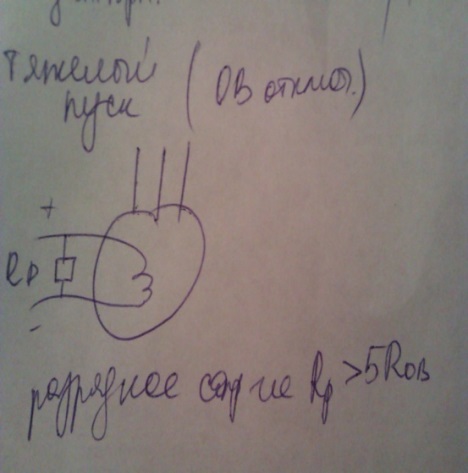 Тяжелый
пуск (ОВ отключ.)
+
Rр
-
разрядное сопр-ие Rр >5Rов